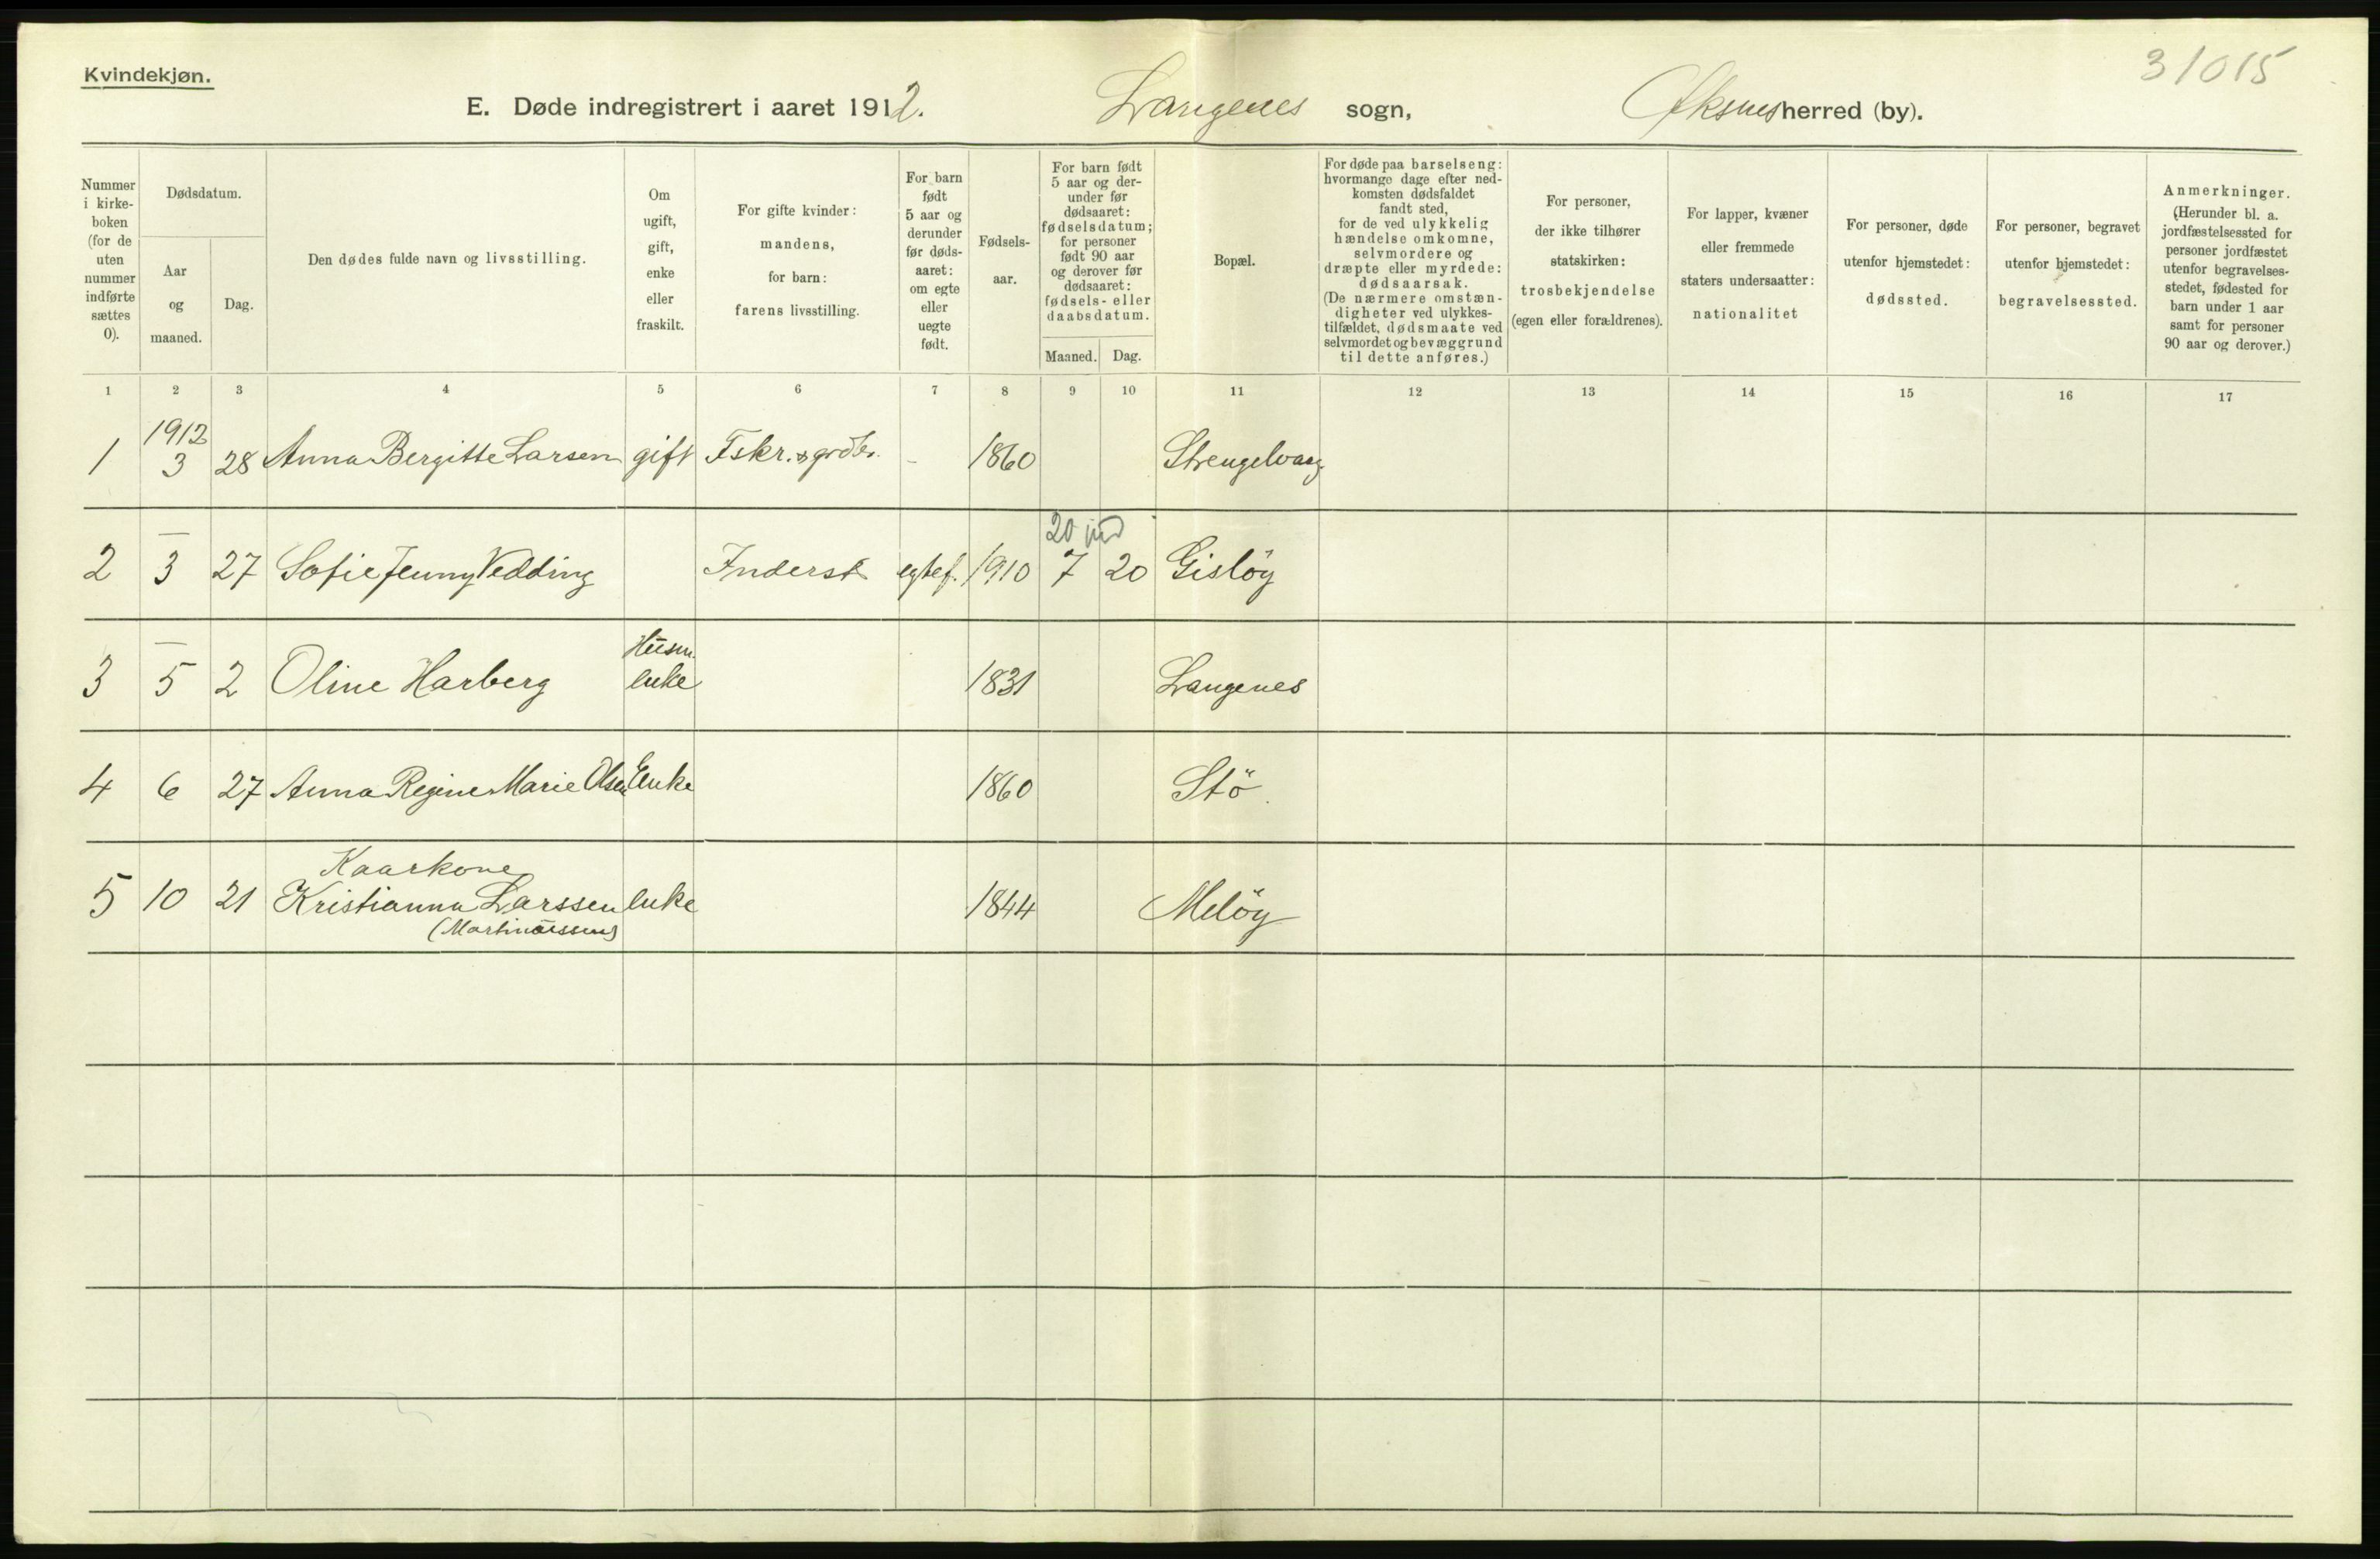 Kvindekjøn.
31015
E. Døde indregistrert i aaret 1912. Langenes sogn, Øksnes herred (by).
Nummer i kirke-boken (for de uten nummer indførte sættes 0).
Dødsdatum.
Aar og maaned.
Dag.
Den dødes fulde navn og livsstilling.
Om ugift, gift, enke eller fraskilt.
For gifte kvinder: mandens, for barn: farens livsstilling.
For barn født 5 aar og derunder før døds-aaret: om egte eller uegte født.
Fødsels-aar.
For barn født 5 aar og der-under før dødsaaret: fødselsdatum; for personer født 90 aar og derover før dødsaaret: fødsels- eller daabsdatum.
Maaned. Dag.
Bopæl.
For døde paa barselseng: hvormange dage efter ned-komsten dødsfaldet fandt sted, for de ved ulykkelig hændelse omkomne, selvmordere og dræpte eller myrdede: dødsaarsak. (De nærmere omstæn-digheter ved ulykkes-tilfældet, dødsmaate ved selvmordet og bevæggrund til dette anføres.)
For personer, der ikke tilhører statskirken: trosbekjendelse (egen eller forældrenes).
For lapper, kvæner eller fremmede staters undersaatter: nationalitet
For personer, døde utenfor hjemstedet: dødssted.
For personer, begravet utenfor hjemstedet: begravelsessted.
Anmerkninger. (Herunder bl. a. jordfæstelsessted for personer jordfæstet utenfor begravelses-stedet, fødested for barn under 1 aar samt for personer 90 aar og derover.)
1 2 3 4 5 6 7 8 9 10 11 12 13 14 15 16 17
1912
1 3 28 Anna Bergitte Larsen gift Fskr. & grdbr. - 1860 Strengelvaag
20 md
2 – 3 27 Sofie Jenny Vedding Inderst egtef. 1910 7 20 Gislöy
Husm.
3 – 5 2 Oline Harberg enke 1831 Langenes
4 6 27 Anna Regine Marie Olsen Enke 1860 Stö.
Kaarkone
5 10 21 Kristianna Larssen enke 1844 Melöy
(Martinüssen)